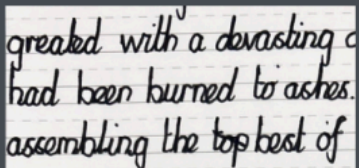 greated with a devasting
had been burned to ashes.
assembling the top best of